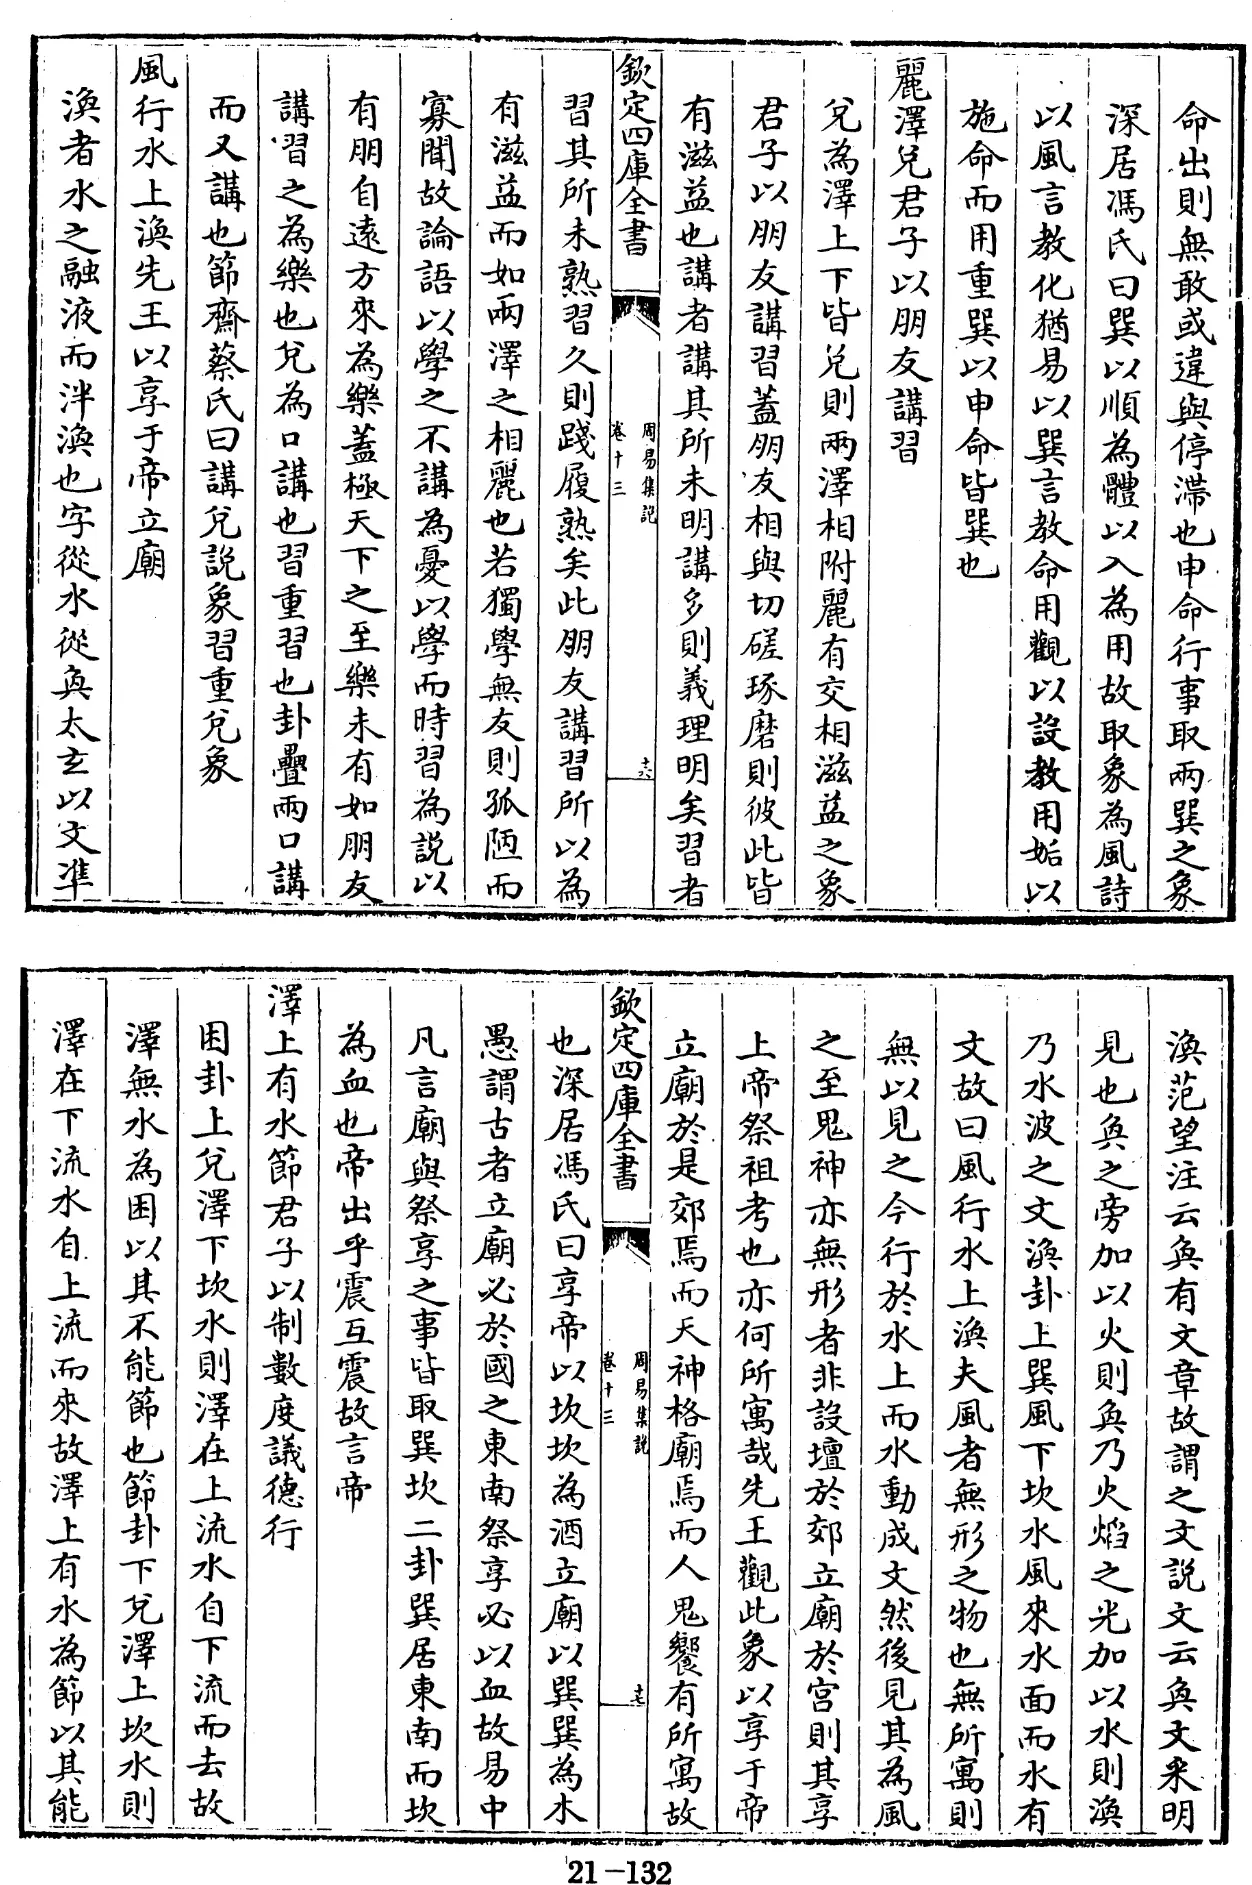 命出則無敢或違與停滯也申命行事取兩巽之象
深居馮氏曰巽以順為體以入為用故取象為風詩
以風言教化猶易以巽言教命用觀以設教用姤以
施命而用重巽以申命皆巽也
麗澤兌君子以朋友講習
兌為澤上下皆兌則兩澤相附麗有交相滋益之象
君子以朋友講習蓋朋友相與切磋琢磨則彼此皆
有滋益也講者講其所未明講多則義理明矣習者
欽定四庫全書
周易集說
卷十三
十六
習其所未熟習久則踐履熟矣此朋友講習所以為
有滋益而如兩澤之相麗也若獨學無友則孤陋而
寡聞故論語以學之不講為憂以學而時習為說以
有朋自遠方來為樂蓋極天下之至樂未有如朋友
講習之為樂也兌為口講也習重習也卦疊兩口講
而又講也節齋蔡氏曰講兌說象習重兌象
風行水上渙先王以享于帝立廟
渙者水之融液而泮渙也字從水從奐太玄以文準
渙范望注云奐有文章故謂之文說文云奐文采明
見也奐之旁加以火則奐乃火焰之光加以水則渙
乃水波之文渙卦上巽風下坎水風來水面而水有
文故曰風行水上渙夫風者無形之物也無所寓則
無以見之今行於水上而水動成文然後見其為風
之至鬼神亦無形者非設壇於郊立廟於宫則其享
上帝祭祖考也亦何所寓哉先王觀此象以享于帝
立廟於是郊焉而天神格廟焉而人鬼饗有所寓故
欽定四庫全書
周易集說
卷十三
十七
也深居馮氏曰享帝以坎坎為酒立廟以巽巽為木
愚謂古者立廟必於國之東南祭享必以血故易中
凡言廟與祭享之事皆取巽坎二卦巽居東南而坎
為血也帝出乎震互震故言帝
澤上有水節君子以制數度議德行
困卦上兌澤下坎水則澤在上流水自下流而去故
澤無水為困以其不能節也節卦下兌澤上坎水則
澤在下流水自上流而來故澤上有水為節以其能
21-132